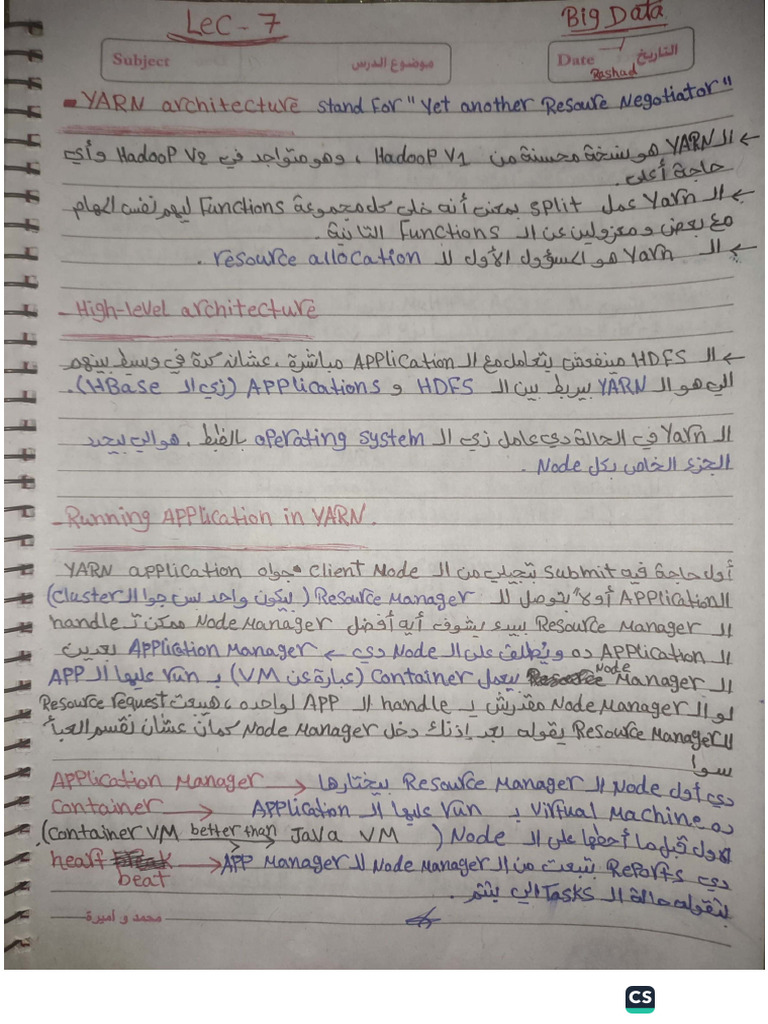 Lec-7
Big Data
Subject
موضوع الدرس
Date
التاريخ
Rashad
- YARN architecture stand For "Yet another Resoure Negotiator"
← الـ YARN هو نسخة محسنة من Hadoop V1 ، وهو متواجد في Hadoop V2 وأي
حاجة أعلى.
← الـ Yarn عمل split بمعنى أنه خلى كل مجموعة Functions ليهم نفس المهام
مع بعض ومعزولين عن الـ Functions التانية.
← الـ Yarn هو المسؤول الأول للـ resource allocation.
- High-level architecture
← الـ HDFS مينفعش يتعامل مع الـ Application مباشرة، عشان كدة في وسيط بينهم
الي هو الـ YARN بيربط بين الـ HDFS و Applications (زي الـ HBase).
الـ Yarn في الحالة دي عامل زي الـ operating system بالظبط، هو الي بيحدد
الجزء الخاص بكل Node.
- Running Application in YARN.
أول حاجة فيه submit بتجيلي من الـ Client Node جواه YARN application
الـ Application أولاً بتوصل للـ Resource Manager (بيكون واحد بس جوا الـ Cluster)
الـ Resource Manager يبدء يشوف أيه أفضل Node Manager ممكن تـ handle
الـ Application ده ويُطلق على الـ Node دي ← Application Manager بعدين
الـ Node Manager بيعمل Container (عبارة عن VM) بـ run عليها الـ App
لو الـ Node Manager مقدرش يـ handle الـ App لواحده، هيبعت Resource request
للـ Resource Manager يقوله بعد إذنك دخل Node Manager كمان عشان نقسم العبأ
سوا
Application Manager → دي أول Node الـ Resource Manager بيختارها
Container → ده Virtual Machine بـ run عليها الـ Application
الاول قبل ما أحطها على الـ Node (Container VM better than Java VM).
heart beat → دي Reports بتبعت من الـ Node Manager للـ App Manager
بتقوله حالة الـ Tasks الي بتتم.
محمد و اميرة
CS